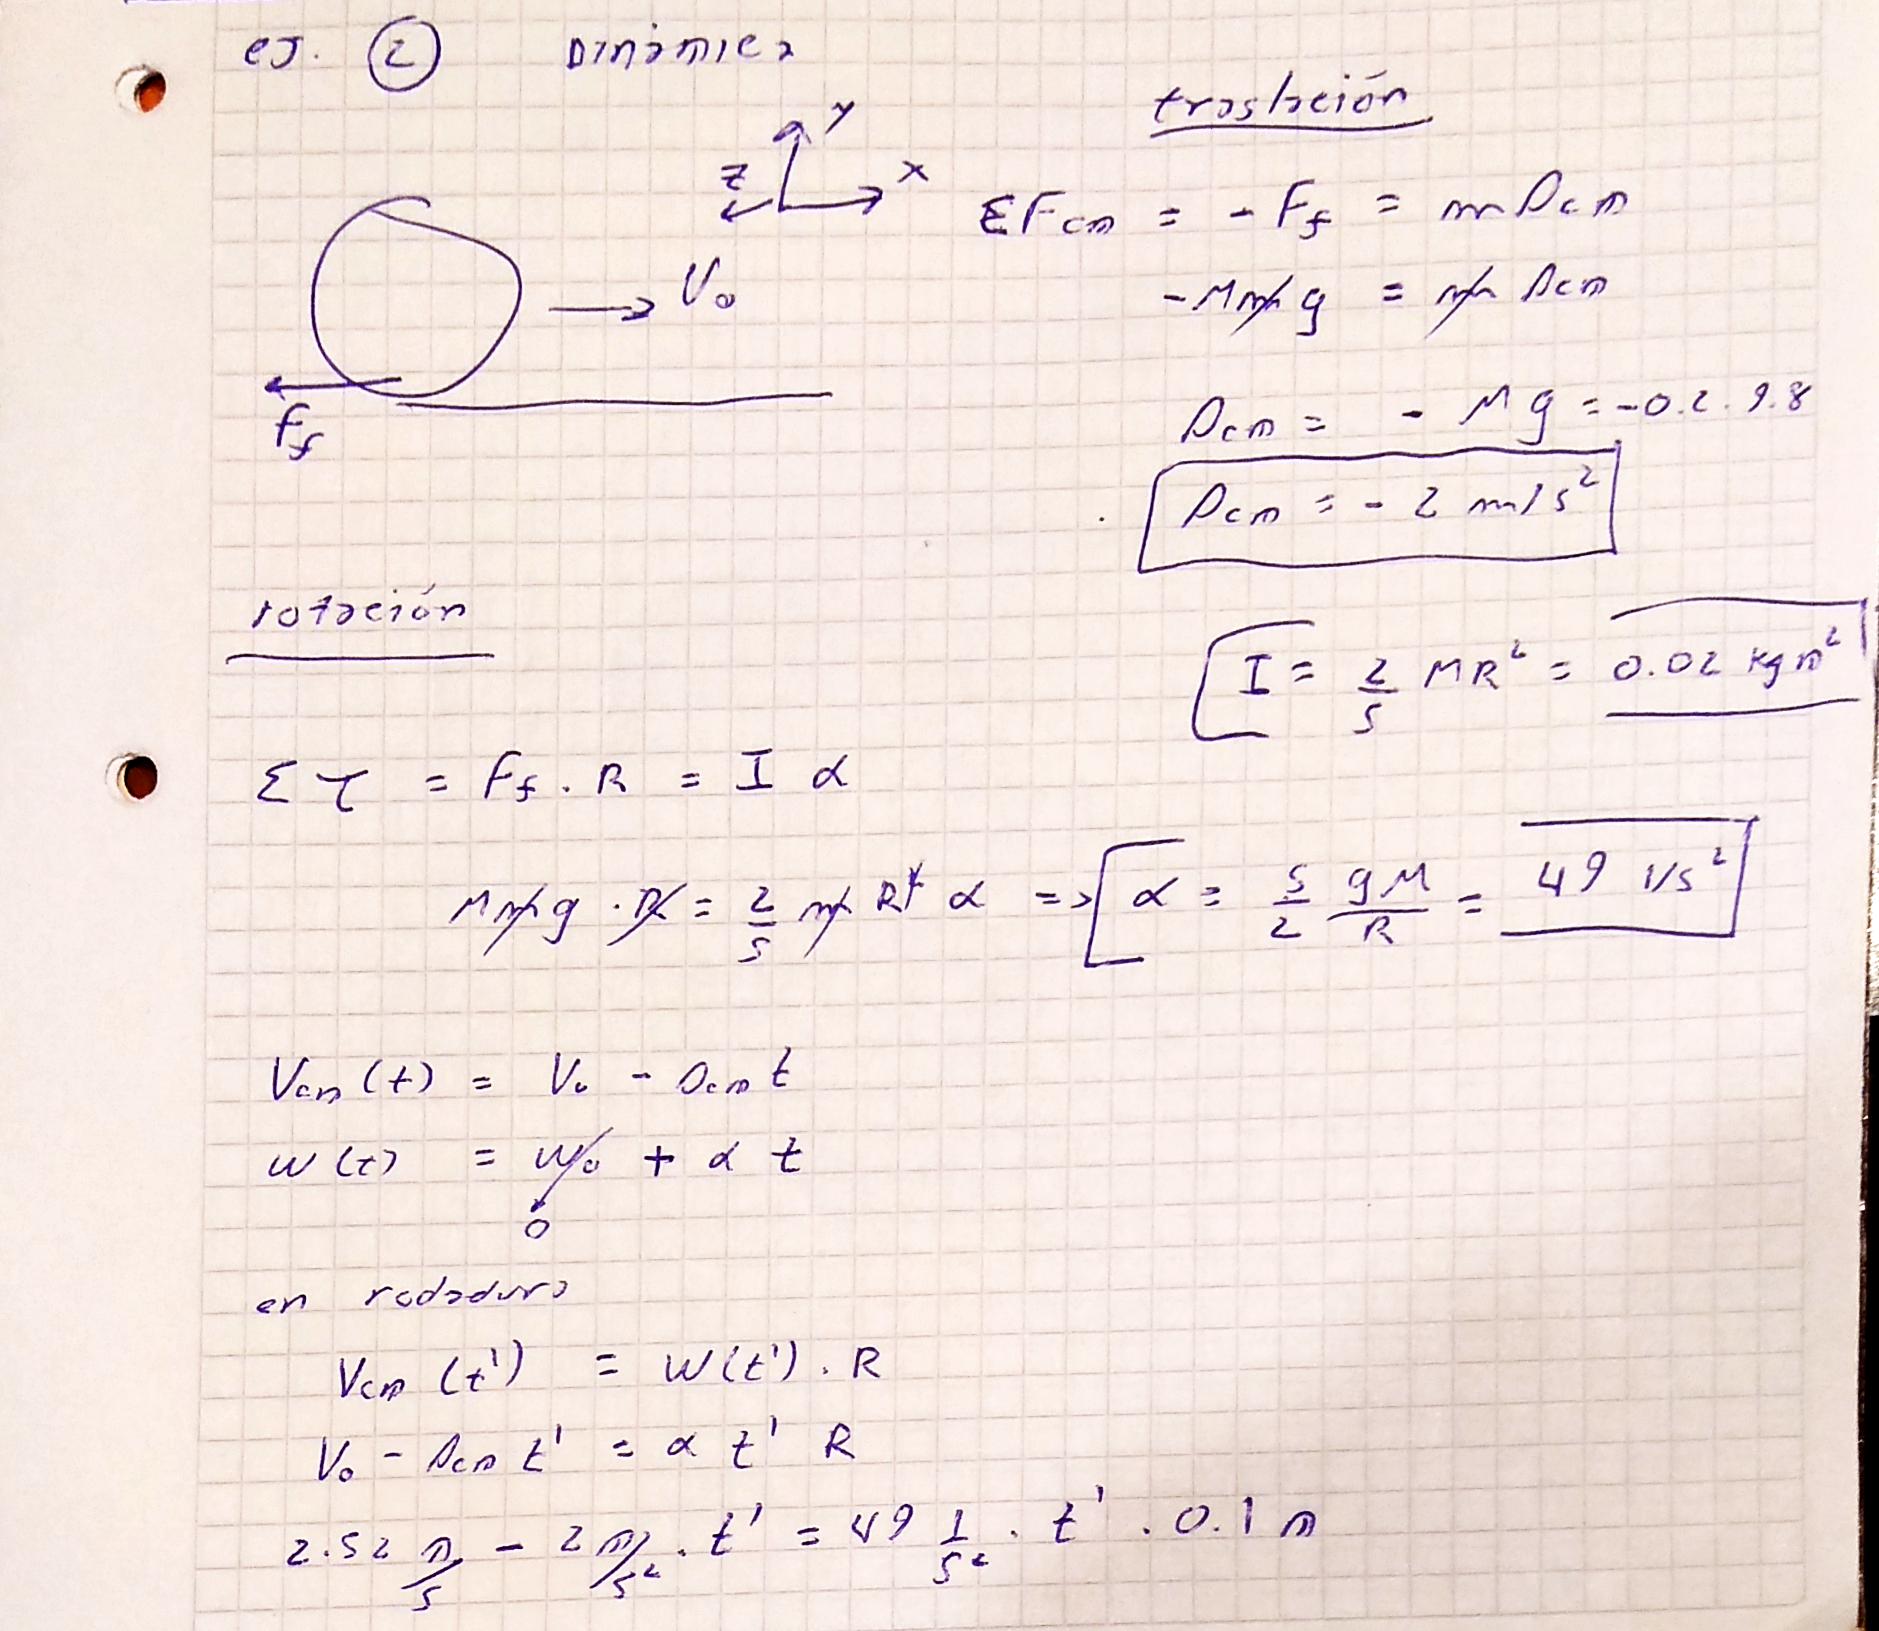 ej. ② Dinámica
traslación
y
z x
ΣFcm = - Ff = m Acm
V₀
- μ m g = m Acm
Ff
Acm = - μ g = -0.2 . 9.8
Acm = - 2 m/s²
rotación
I = 2/5 MR² = 0.02 kg m²
Σ τ = Ff . R = I α
μ m g . R = 2/5 m R² α => α = 5/2 gμ/R = 49 1/s²
Vcm (t) = V₀ - acm t
w (t) = w₀ + α t
0
en rodadura
Vcm (t') = w(t') . R
V₀ - Acm t' = α t' R
2.52 m/s - 2 m/s² . t' = 49 1/s² . t' . 0.1 m